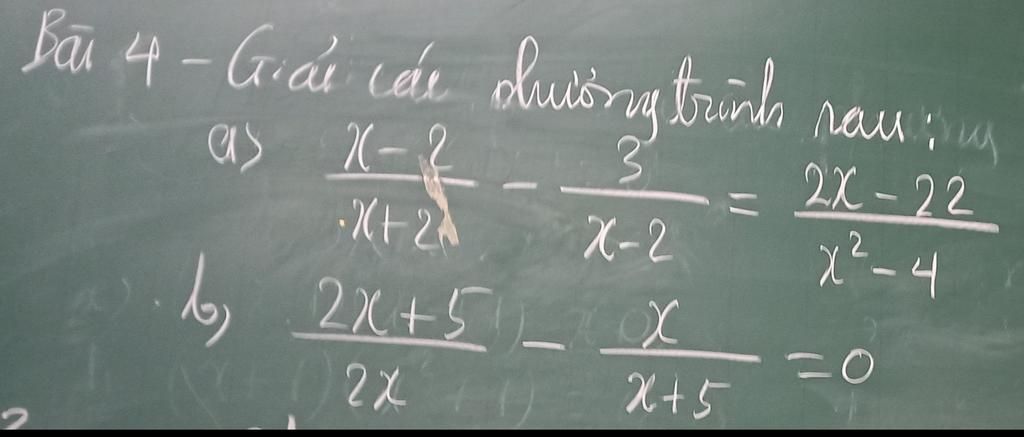 Bài 4 - Giải các phương trình sau:
a) \frac{x-2}{x+2} - \frac{3}{x-2} = \frac{2x-22}{x^2-4}
b, \frac{2x+5}{2x} - \frac{x}{x+5} = 0